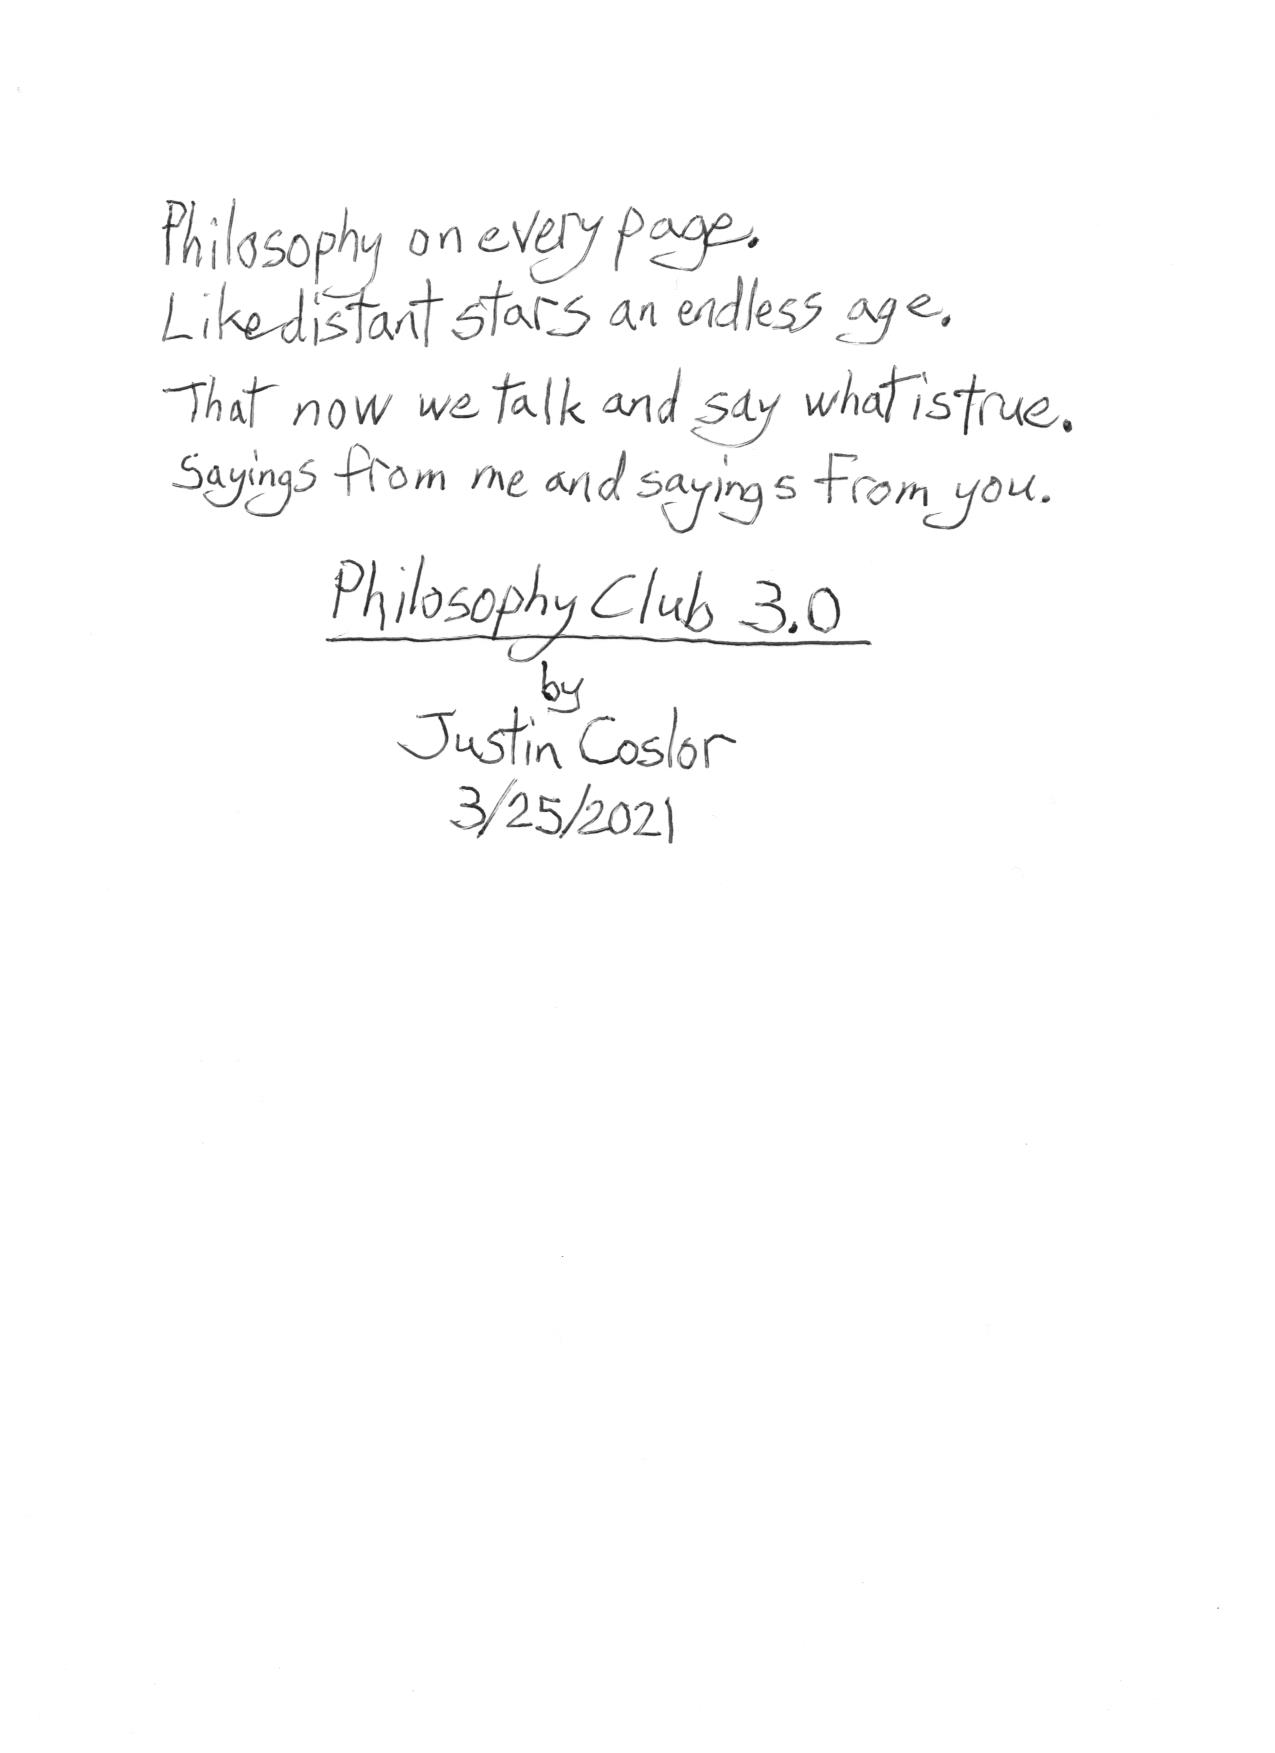 Philosophy on every page.
Like distant stars an endless age.
That now we talk and say what is true.
Sayings from me and sayings from you.
Philosophy Club 3.0
by
Justin Coslor
3/25/2021